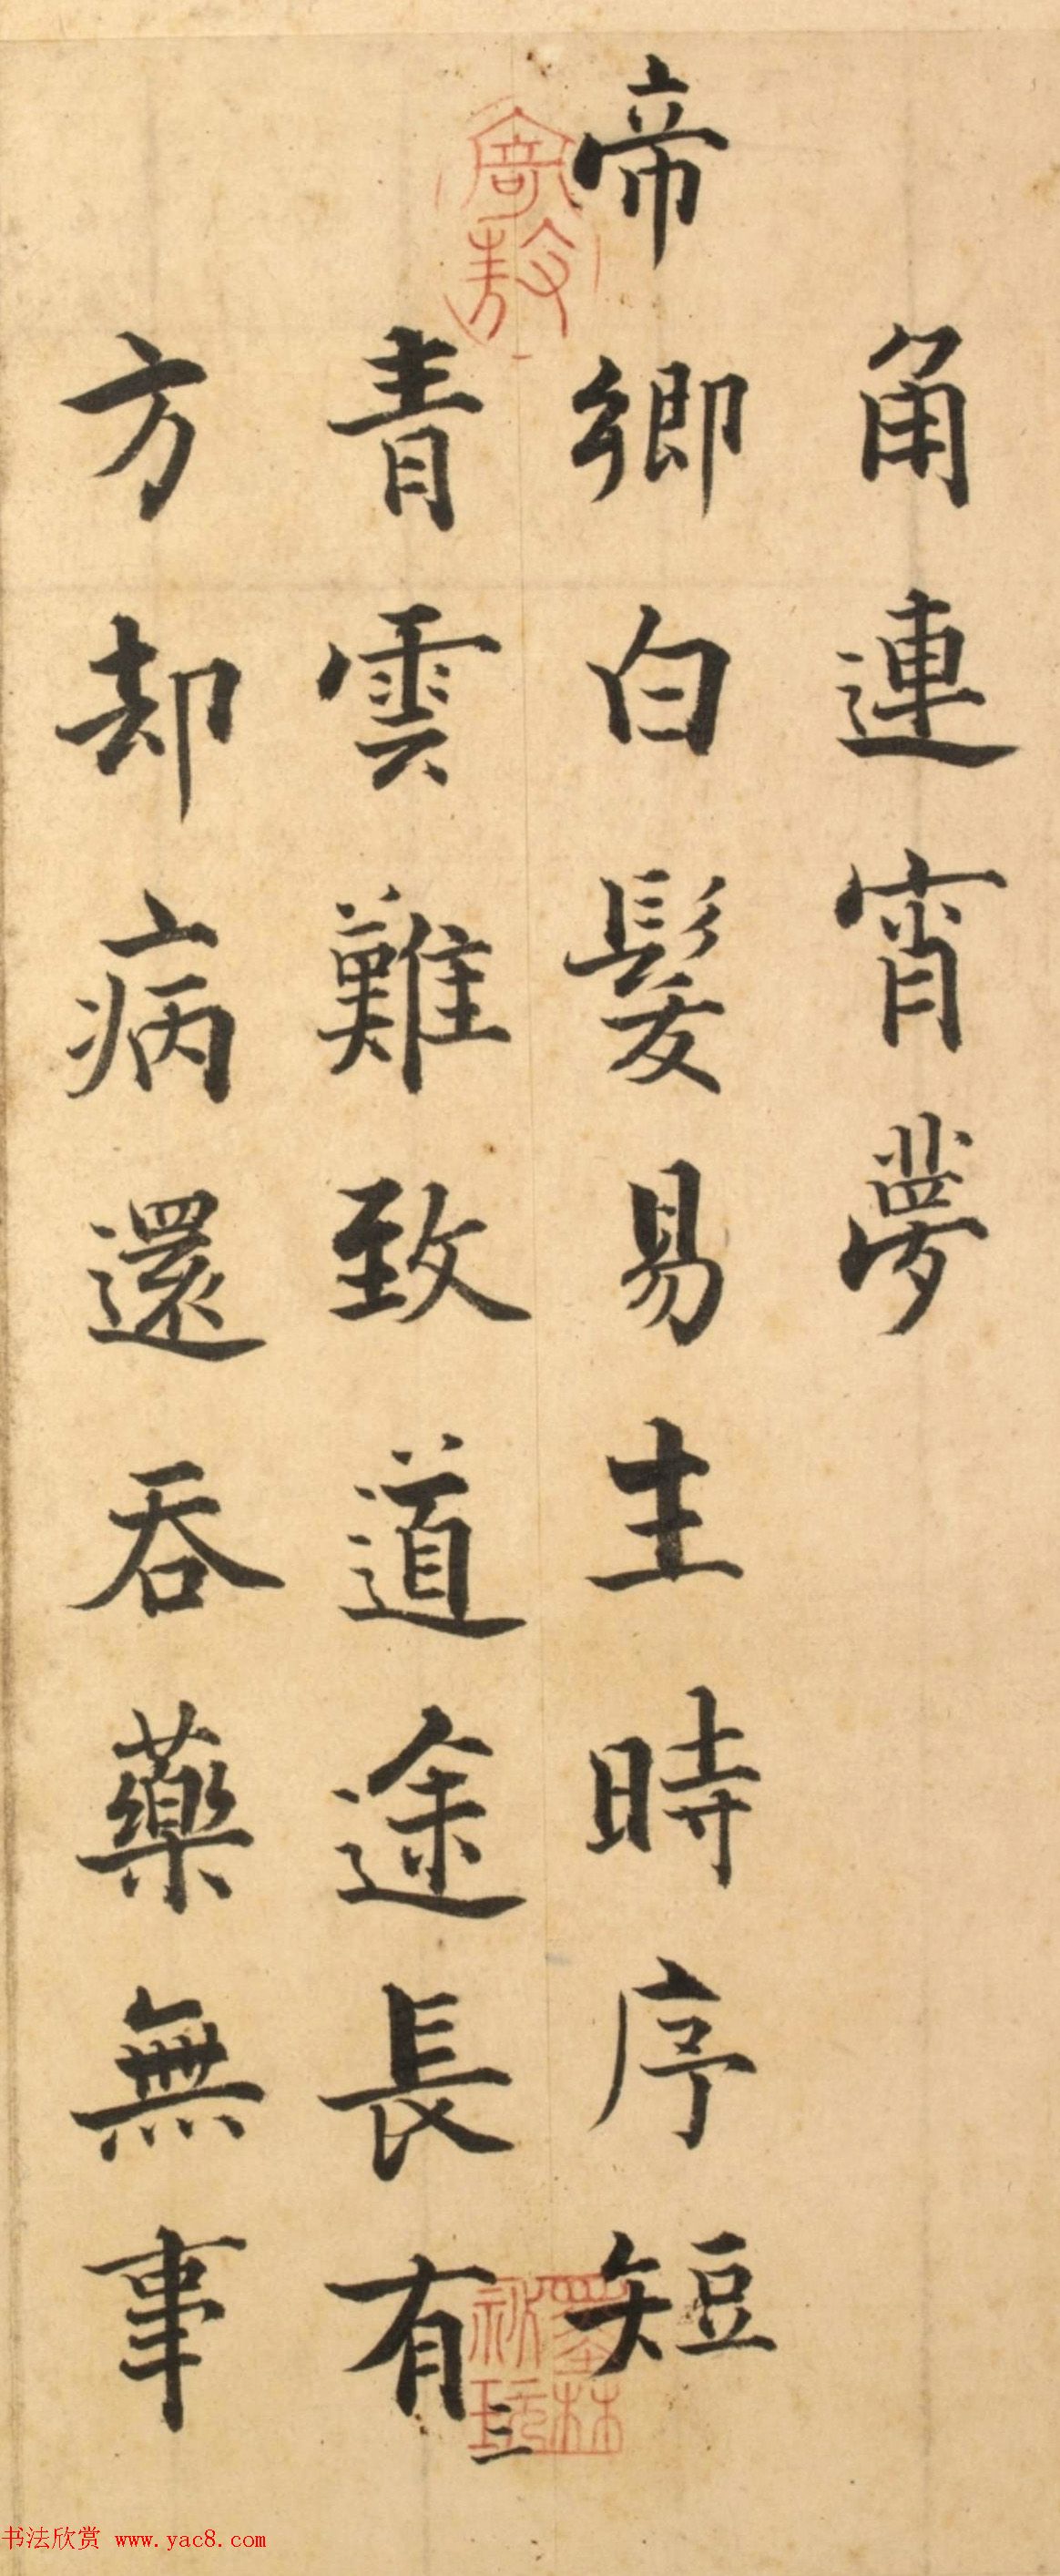 角連宵夢
帝鄉白髮易生時序短
青雲難致道途長有
方却病還吞藥無事
三
墨林
祕玩
书法欣赏 www.yac8.com